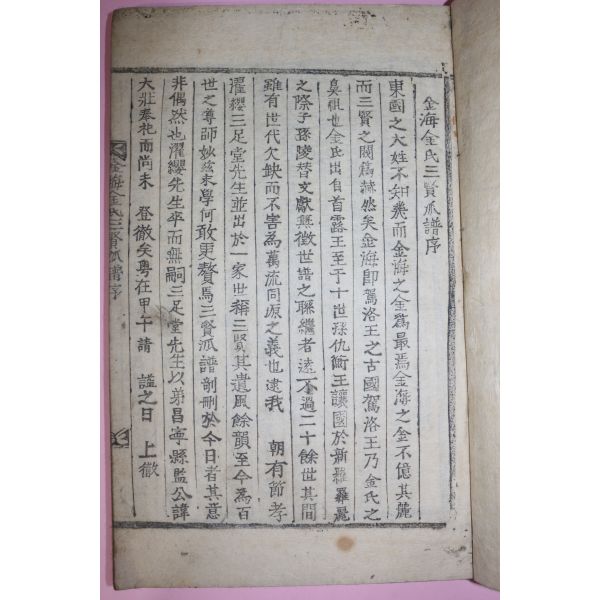 金海金氏三賢派譜序
東國之大姓不知幾而金海之金爲最焉金海之金不億其麗
而三賢之閥爲赫然矣金海卽駕洛王之古國駕洛王乃金氏之
鼻祖也金氏出自首露王至于十世孫仇衡王讓國於新羅羅麗
之際子孫陵替文獻無徵世譜之聯繼者遠不過二十餘世其間
雖有世代欠缺而不害為萬流同源之義也逮我 朝有節孝
濯纓三足堂先生並出於一家世稱三賢其遺風餘韻至今為百
世之尊師妙玆末學何敢更贅焉三賢派譜剞刪於今日者其意
非偶然也濯纓先生卒而無嗣三足堂先生以弟昌寧縣監公諱
大壯奉祀而尚未 登徹矣粤在甲午請 謚之日 上徹
金海金氏三賢派譜序